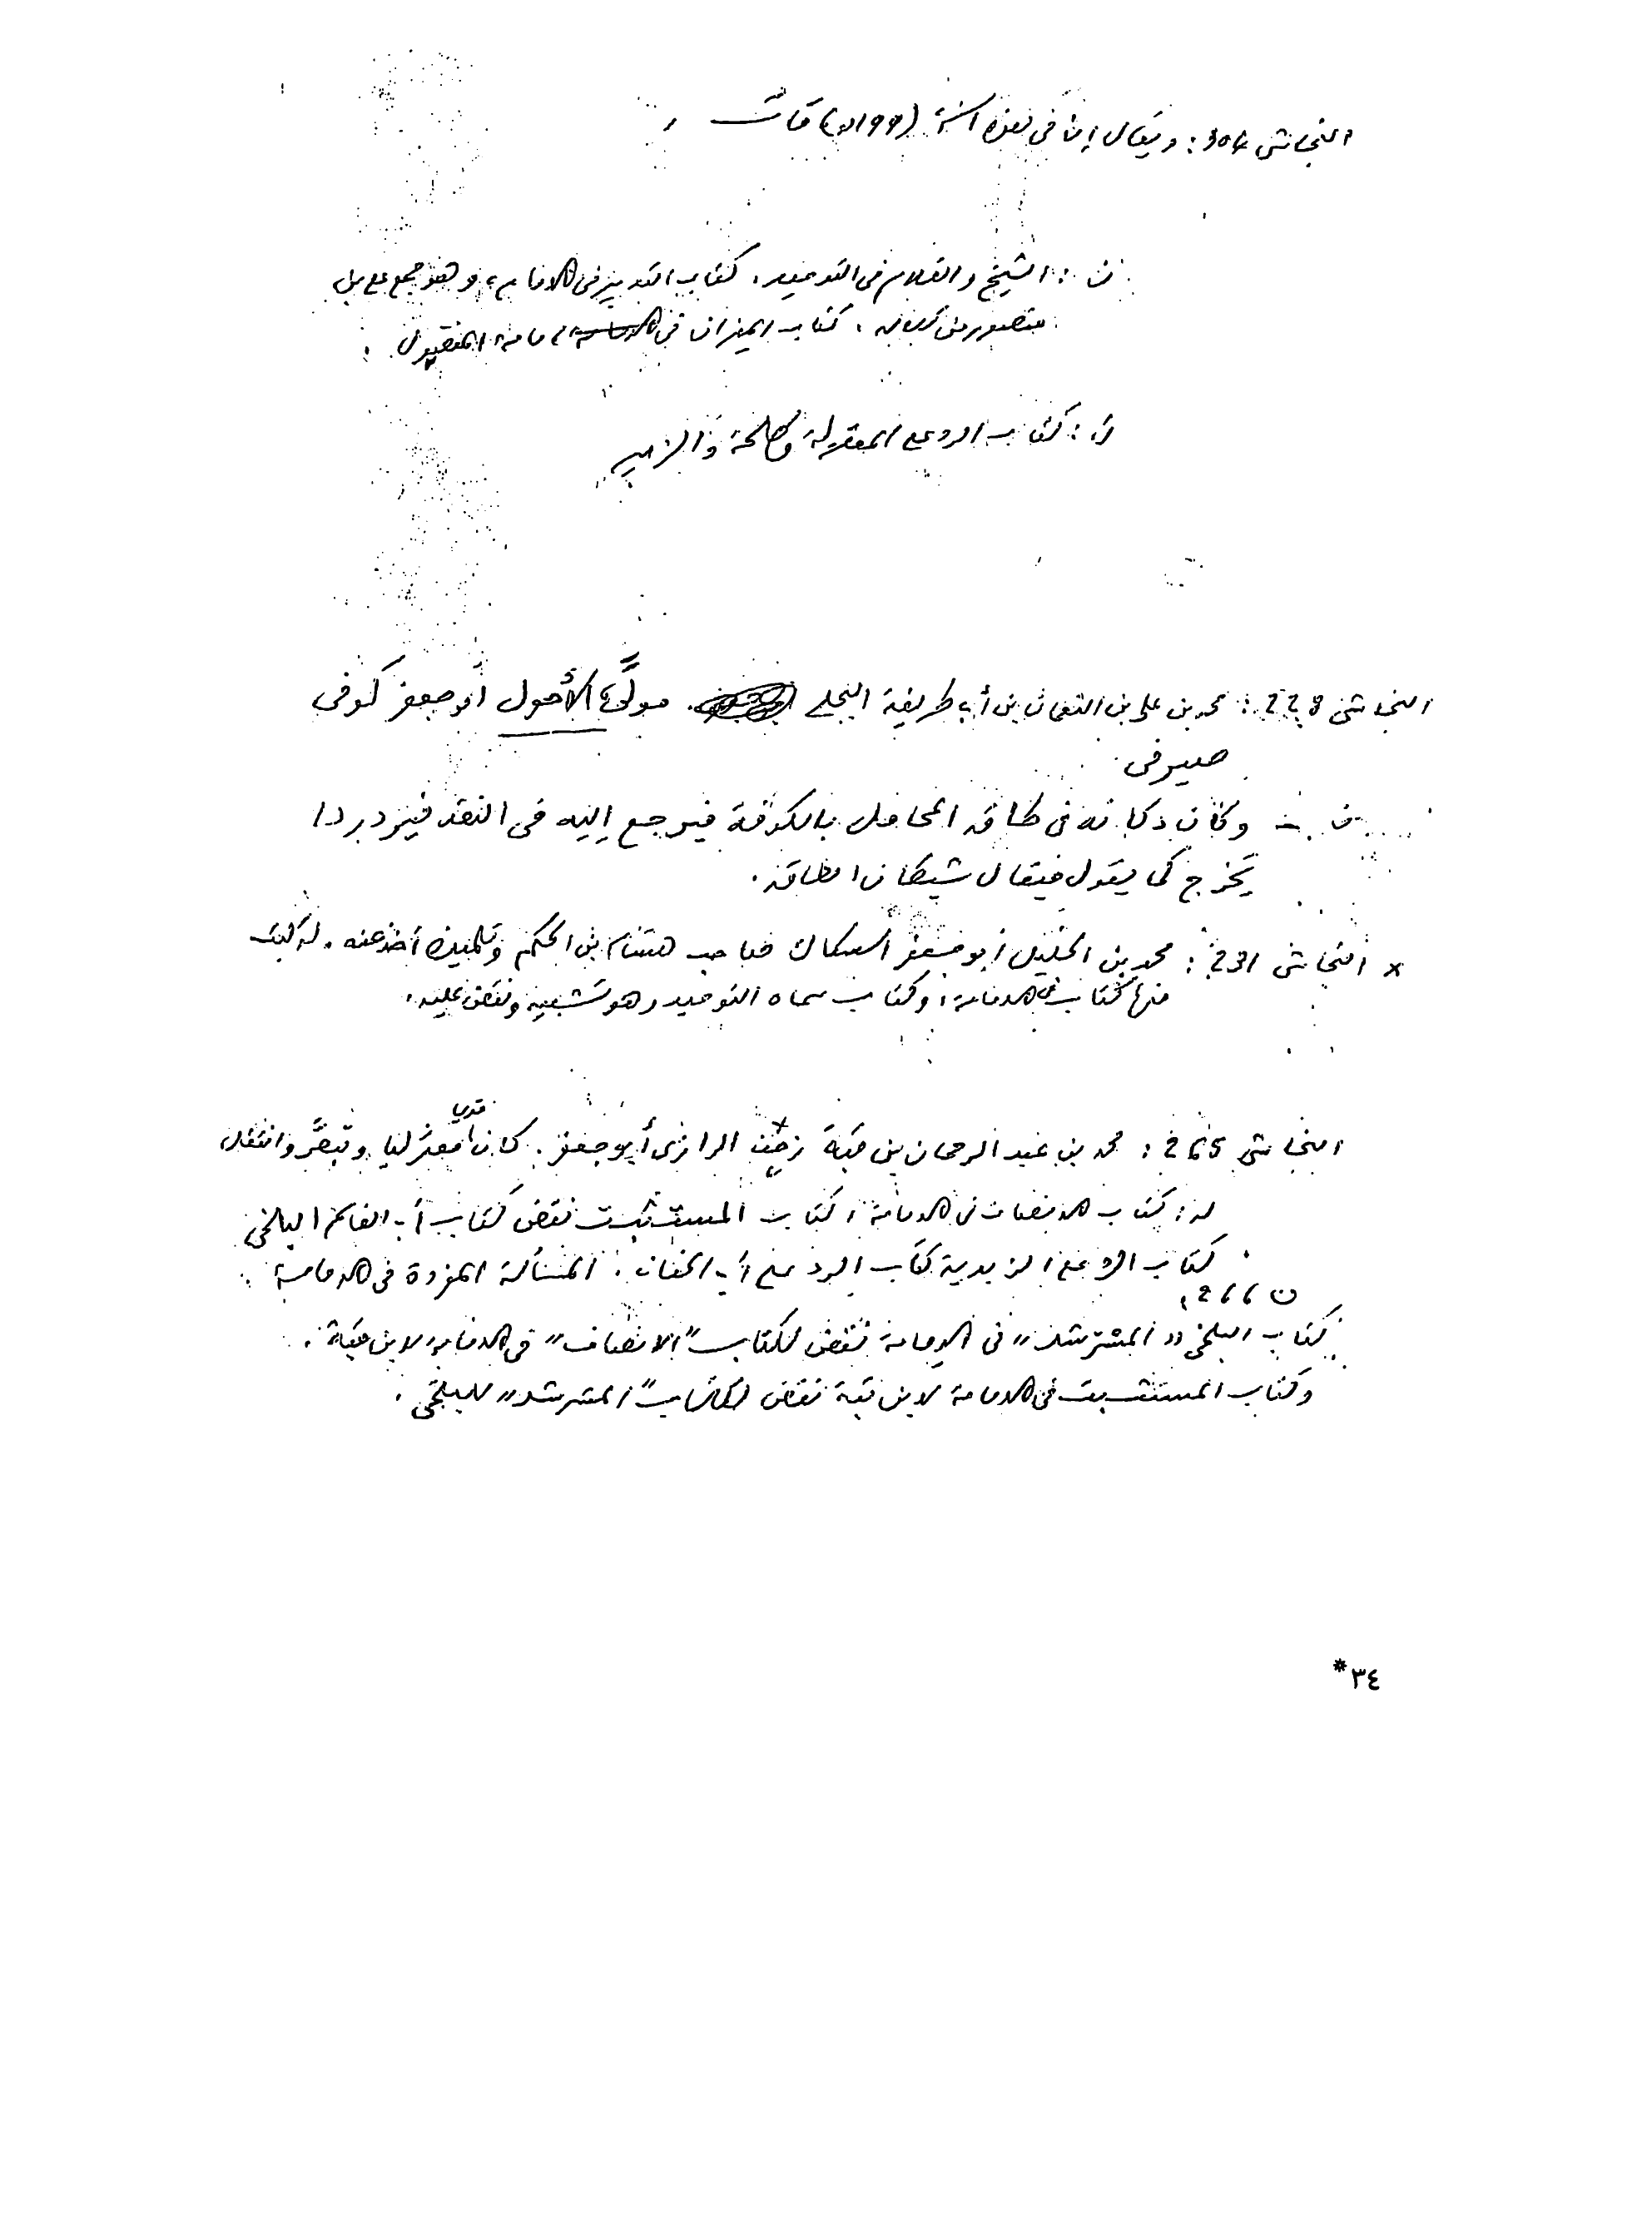 النجاشى 304: ويقال إن فى هذه السنة (199ه) مات
ن: الشيخ والغلام فى التوحيد، كتاب التدبير فى الامامة، وهو جمع على بن
منصور من كلامه، كتاب الميزان، كتاب فى امامة المفضول.
ن: كتاب الرد على المعتزلة وطلحة والزبير
النجاشى 228: محمد بن على بن النعمان بن أبى طريفة البجلى مولى الأحول أبو جعفر كوفى
صيرفى
ن: وكان دكانه فى طاق المحامل بالكوفة فيرجع إليه فى النقد فيرد ردا
يخرج كما يقول فيقال شيطان الطاق.
x النجاشى 231: محمد بن الخليل أبو جعفر السكاك صاحب هشام بن الحكم وتلميذه أخذ عنه. له كتب
منها كتاب فى الامامة، وكتاب سماه التوحيد وهو تشبيه ونقض عليه.
النجاشى 265: محمد بن عبد الرحمان بن قبة الرازى أبو جعفر. كان قديما معتزليا وتبصَّر وانتقل
له: كتاب الانصاف فى الامامة، كتاب المستثبت نقض كتاب أبى القاسم البلخى
كتاب الرد على الزيدية كتاب الرد على أبى على الجبائى. المسألة المفردة فى الامامة.
ن 266:
كتاب البلخى "المسترشد" فى الامامة نقض لكتاب "الانصاف" فى الامامة لابن قبة.
وكتاب المستثبت فى الامامة لابن قبة نقض لكتاب "المسترشد" للبلخى.
٣٤*